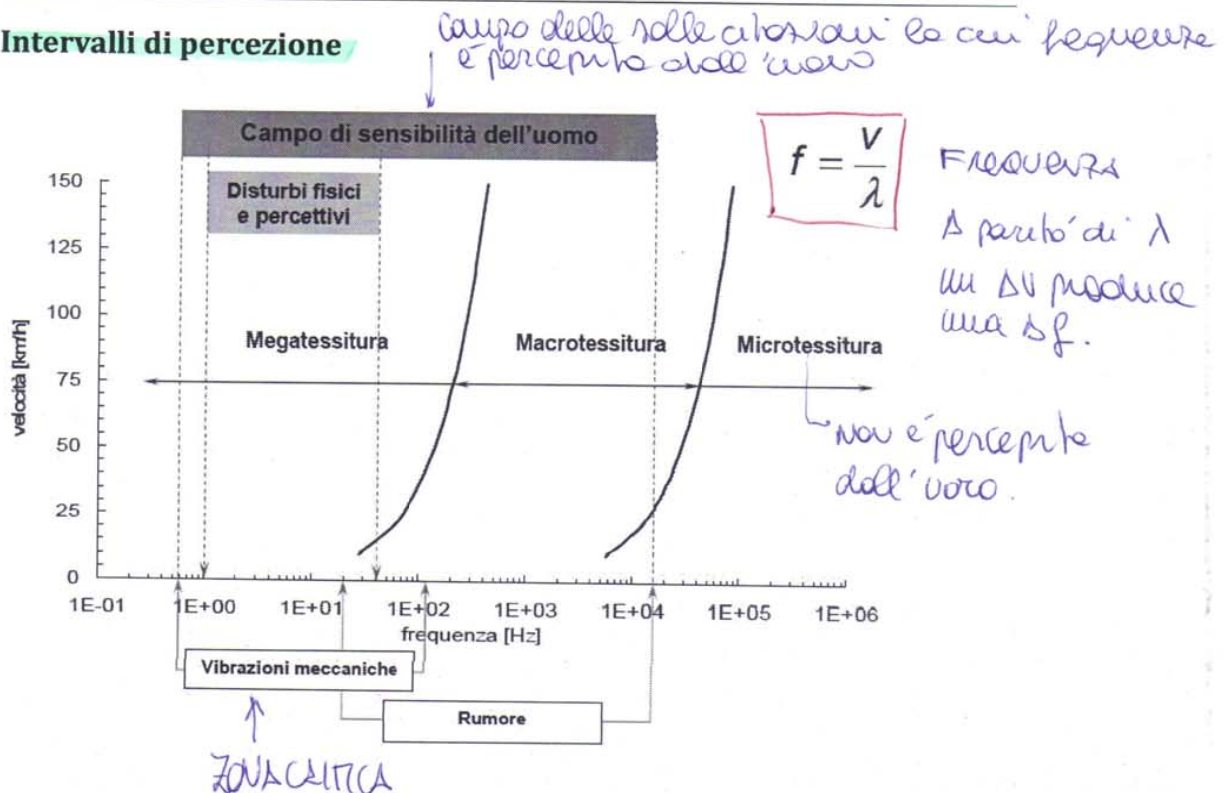 Intervalli di percezione
campo delle sollecitazioni la cui frequenza
è percepita dall'uomo
Campo di sensibilità dell'uomo
f = v/λ
FREQUENZA
Disturbi fisici
e percettivi
A parità di λ
un ΔV produce
una Δf.
150
125
100
75
50
25
0
velocità [km/h]
Megatessitura
Macrotessitura
Microtessitura
Non è percepita
dall'uomo.
1E-01 1E+00 1E+01 1E+02 1E+03 1E+04 1E+05 1E+06
frequenza [Hz]
Vibrazioni meccaniche
Rumore
ZONA CRITICA